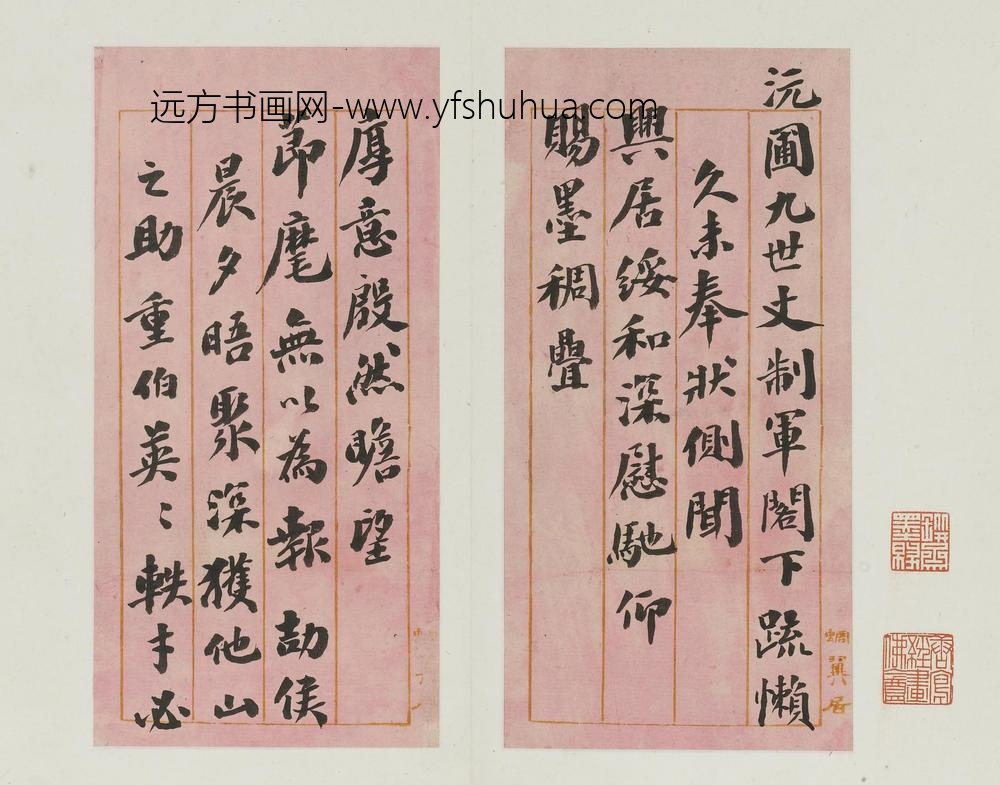 远方书画网-www.yfshuhua.com
沅圃九世丈制軍閣下疏懶
久未奉狀側聞
興居綏和深慰馳仰
賜墨稠疊
厚意殷然瞻望
節麾無以為報劼侯
晨夕晤聚深獲他山
之助重伯英〻軼才必
蜩翼居